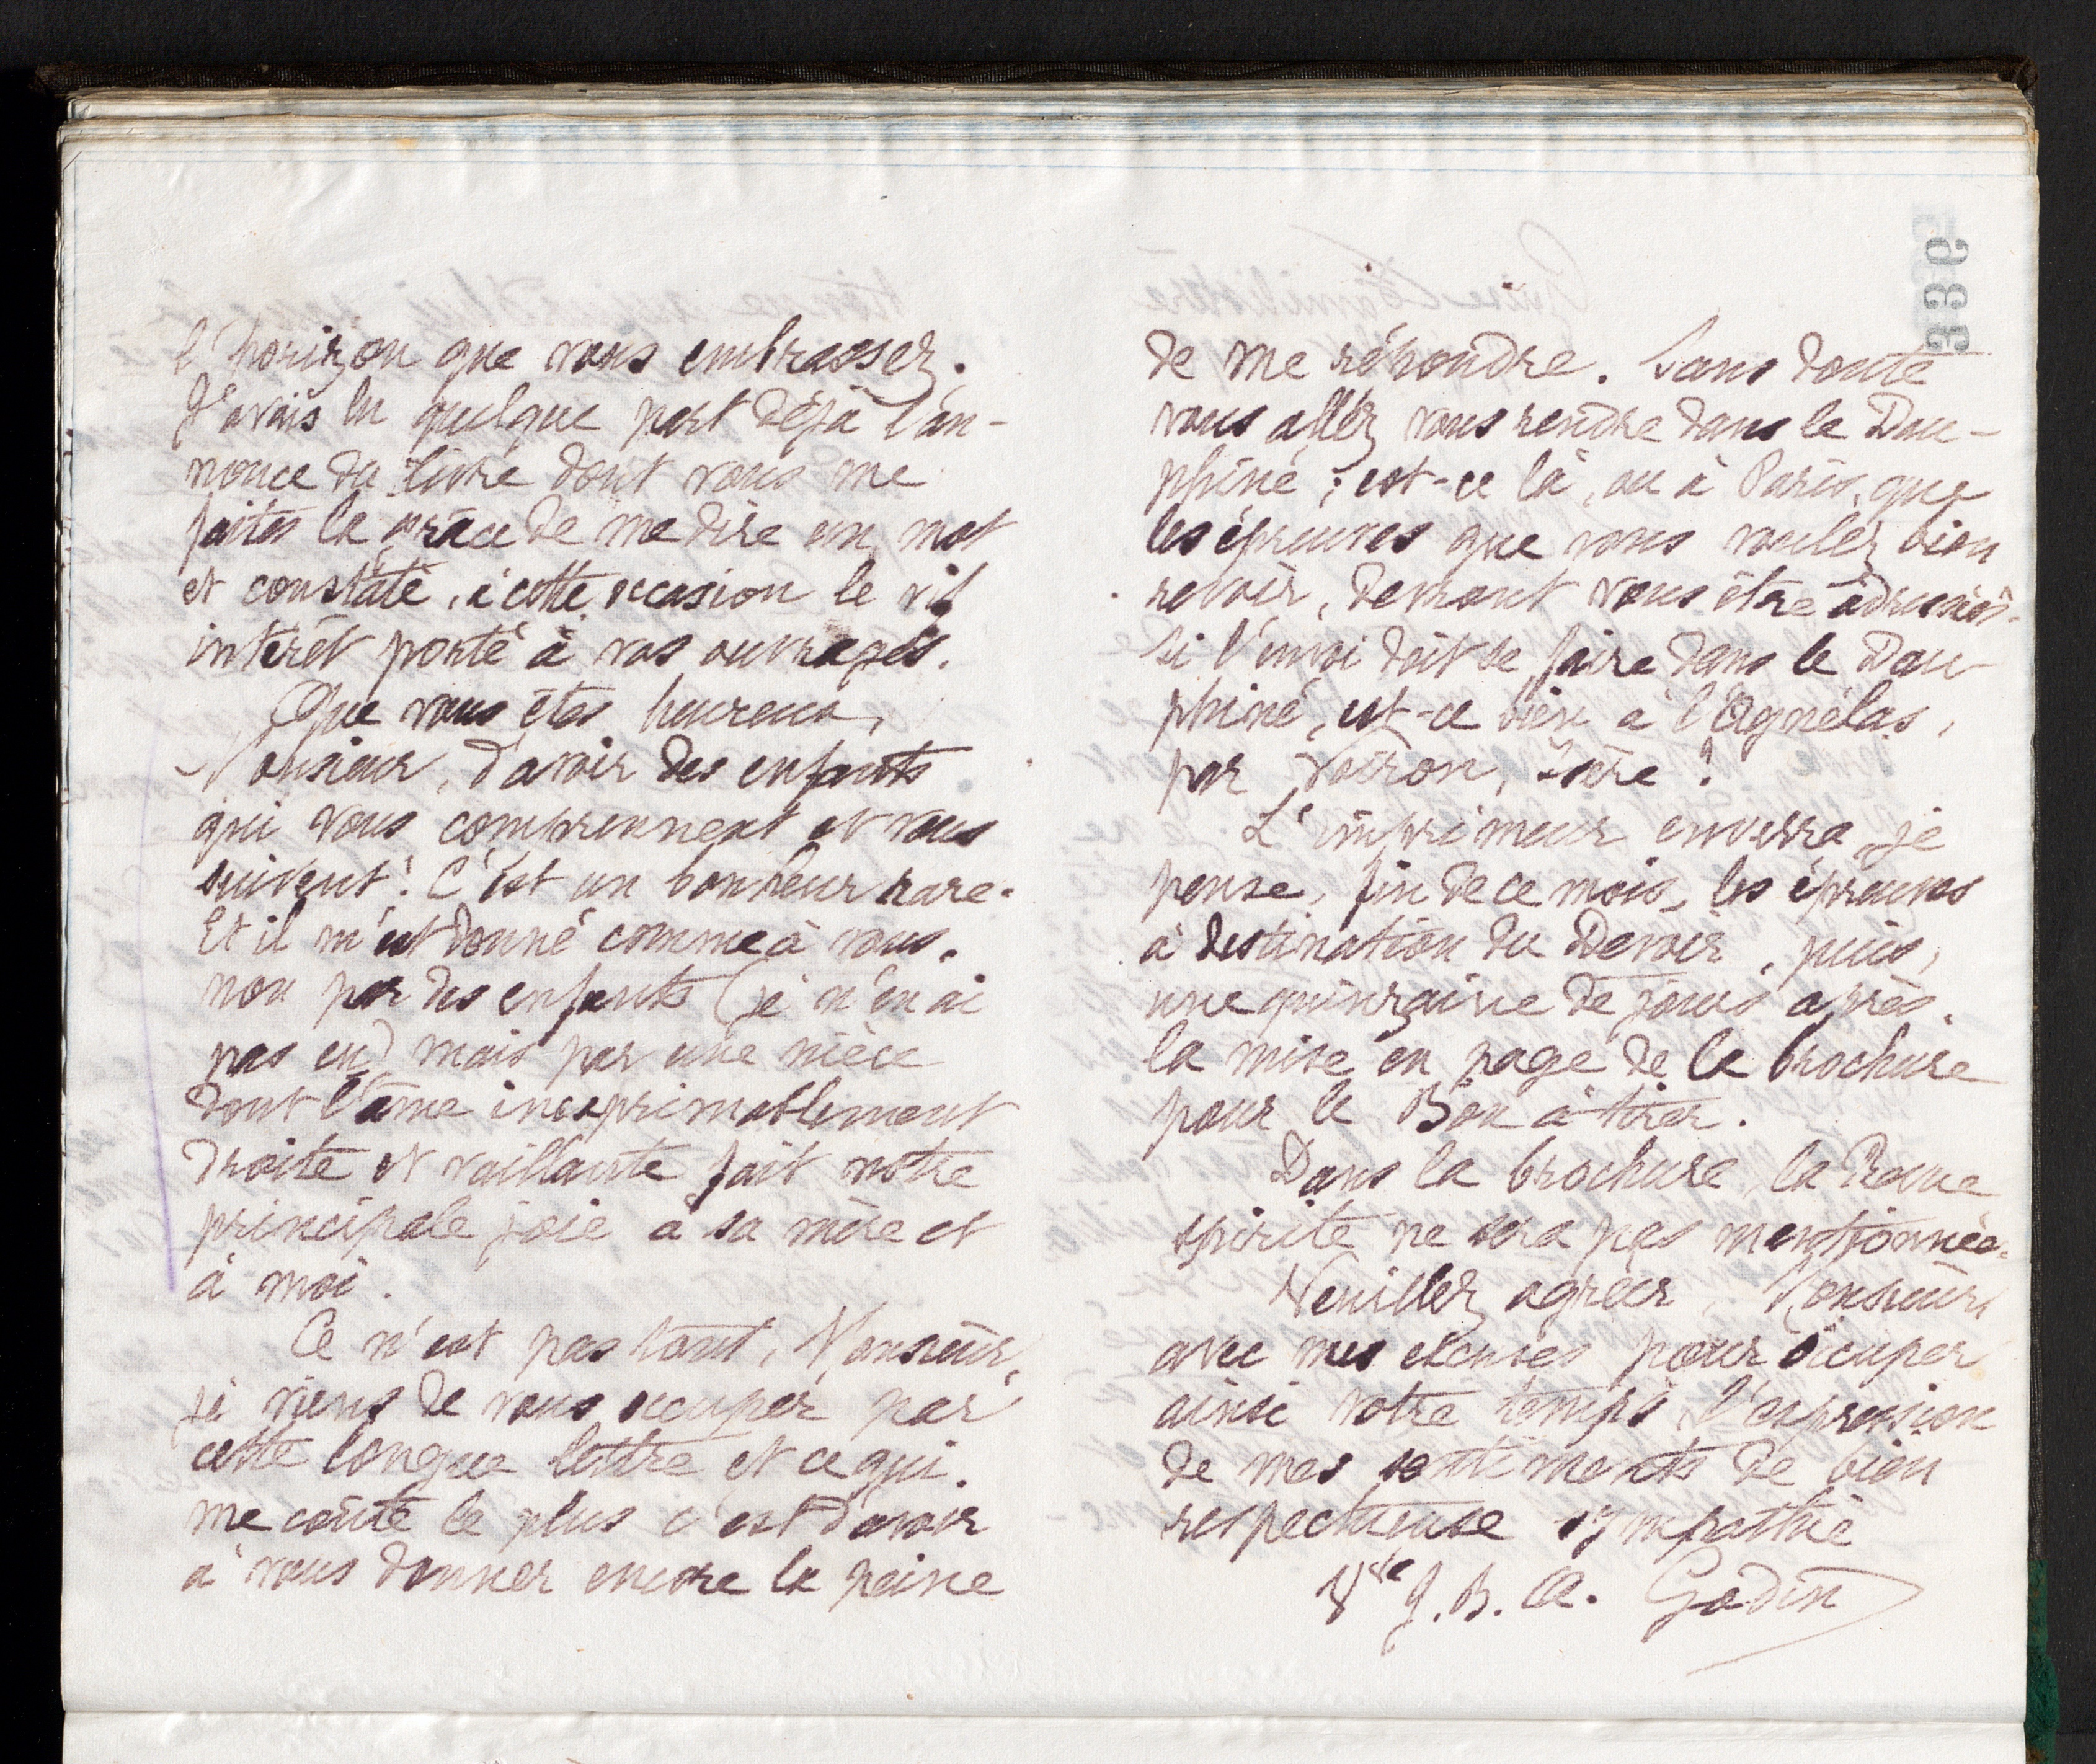 l'horizon que vous embrassez.
J'avais lu quelque part déjà l'an-
nonce du livre dont vous me
faites la grâce de me dire un mot
et constaté, à cette occasion le vif
intérêt porté à vos ouvrages.
Que vous êtes heureux,
Monsieur, d'avoir des enfants
qui vous comprennent et vous
suivent! C'est un bonheur rare.
Et il m'est donné comme à vous,
non par des enfants (je n'en ai
pas eu) mais par une nièce
dont l'âme inexprimablement
droite et vaillante fait notre
principale joie à sa mère et
à moi.
Ce n'est pas tout, Monsieur,
je viens de vous occuper par
cette longue lettre et ce qui
me coûte le plus c'est d'avoir
à vous donner encore la peine
336
de me répondre. Sans doute
vous allez vous rendre dans le Dau-
phiné; est-ce là, ou à Paris, que
les épreuves que vous voulez bien
revoir, devront vous être adressées.
Si l'envoi doit se faire dans le Dau-
phiné, est-ce bien à l'Agnélas,
par Voiron, Isère?
L'imprimeur enverra, je
pense, fin de ce mois, les épreuves
à destination du Devoir, puis,
une quinzaine de jours après,
la mise en page de la brochure
pour le Bon à tirer.
Dans la brochure la Revue
spirite ne sera pas mentionnée.
Veuillez agréer, Monsieur,
avec mes excuses pour occuper
ainsi votre temps, l'expression
de mes sentiments de bien
respectueuse sympathie
Vve J. B. A. Godin